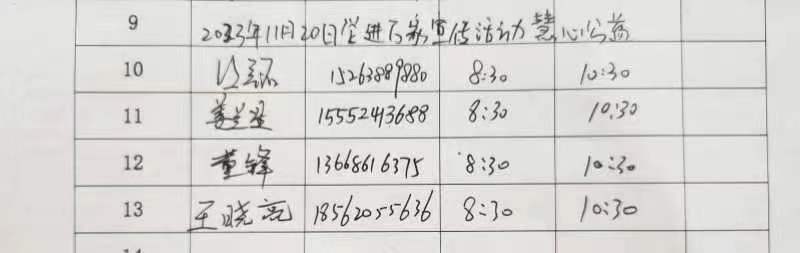 9 2023年11月20日促进万家宣传活动 慧心公益
10 15263889880 8:30 10:30
11 姜兰星 15552243688 8:30 10:30
12 董锋 13668616375 8:30 10:30
13 王晓亮 18562055636 8:30 10:30